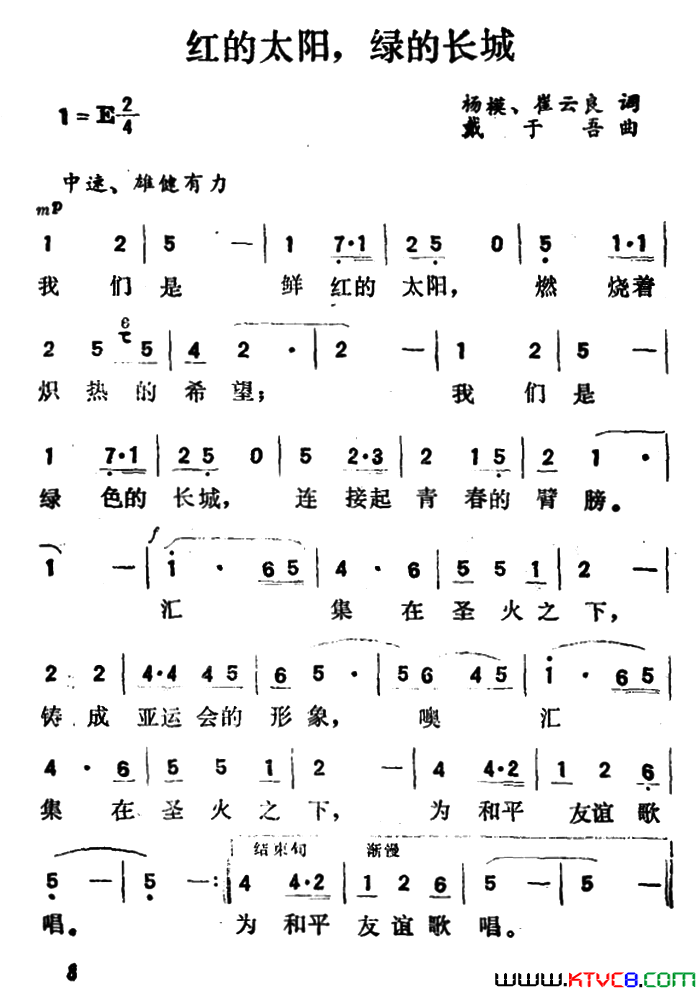 红的太阳，绿的长城
1=E 2/4
杨模、崔云良 词
戴于吾 曲
中速、雄健有力
mp
1 2 | 5 — | 1 7·1 | 2 5 0 | 5 1·1 |
我们是 鲜红的太阳， 燃烧着
6
2 5 5 | 4 2 · | 2 — | 1 2 | 5 — |
炽热的希望； 我们是
1 7·1 | 2 5 0 | 5 2·3 | 2 1 5 | 2 1 · |
绿色的长城， 连接起青春的臂膀。
f
1 — | 1 · 6 5 | 4 · 6 | 5 5 1 | 2 — |
汇集在圣火之下，
2 2 | 4·4 4 5 | 6 5 · | 5 6 4 5 | 1 · 6 5 |
铸成亚运会的形象， 噢 汇
4 · 6 | 5 5 1 | 2 — | 4 4·2 | 1 2 6 |
集在圣火之下， 为和平友谊歌
结束句 渐慢
5 — | 5 — :| 4 4·2 | 1 2 6 | 5 — | 5 — |
唱。 为和平友谊歌唱。
8
www.KTVC8.com